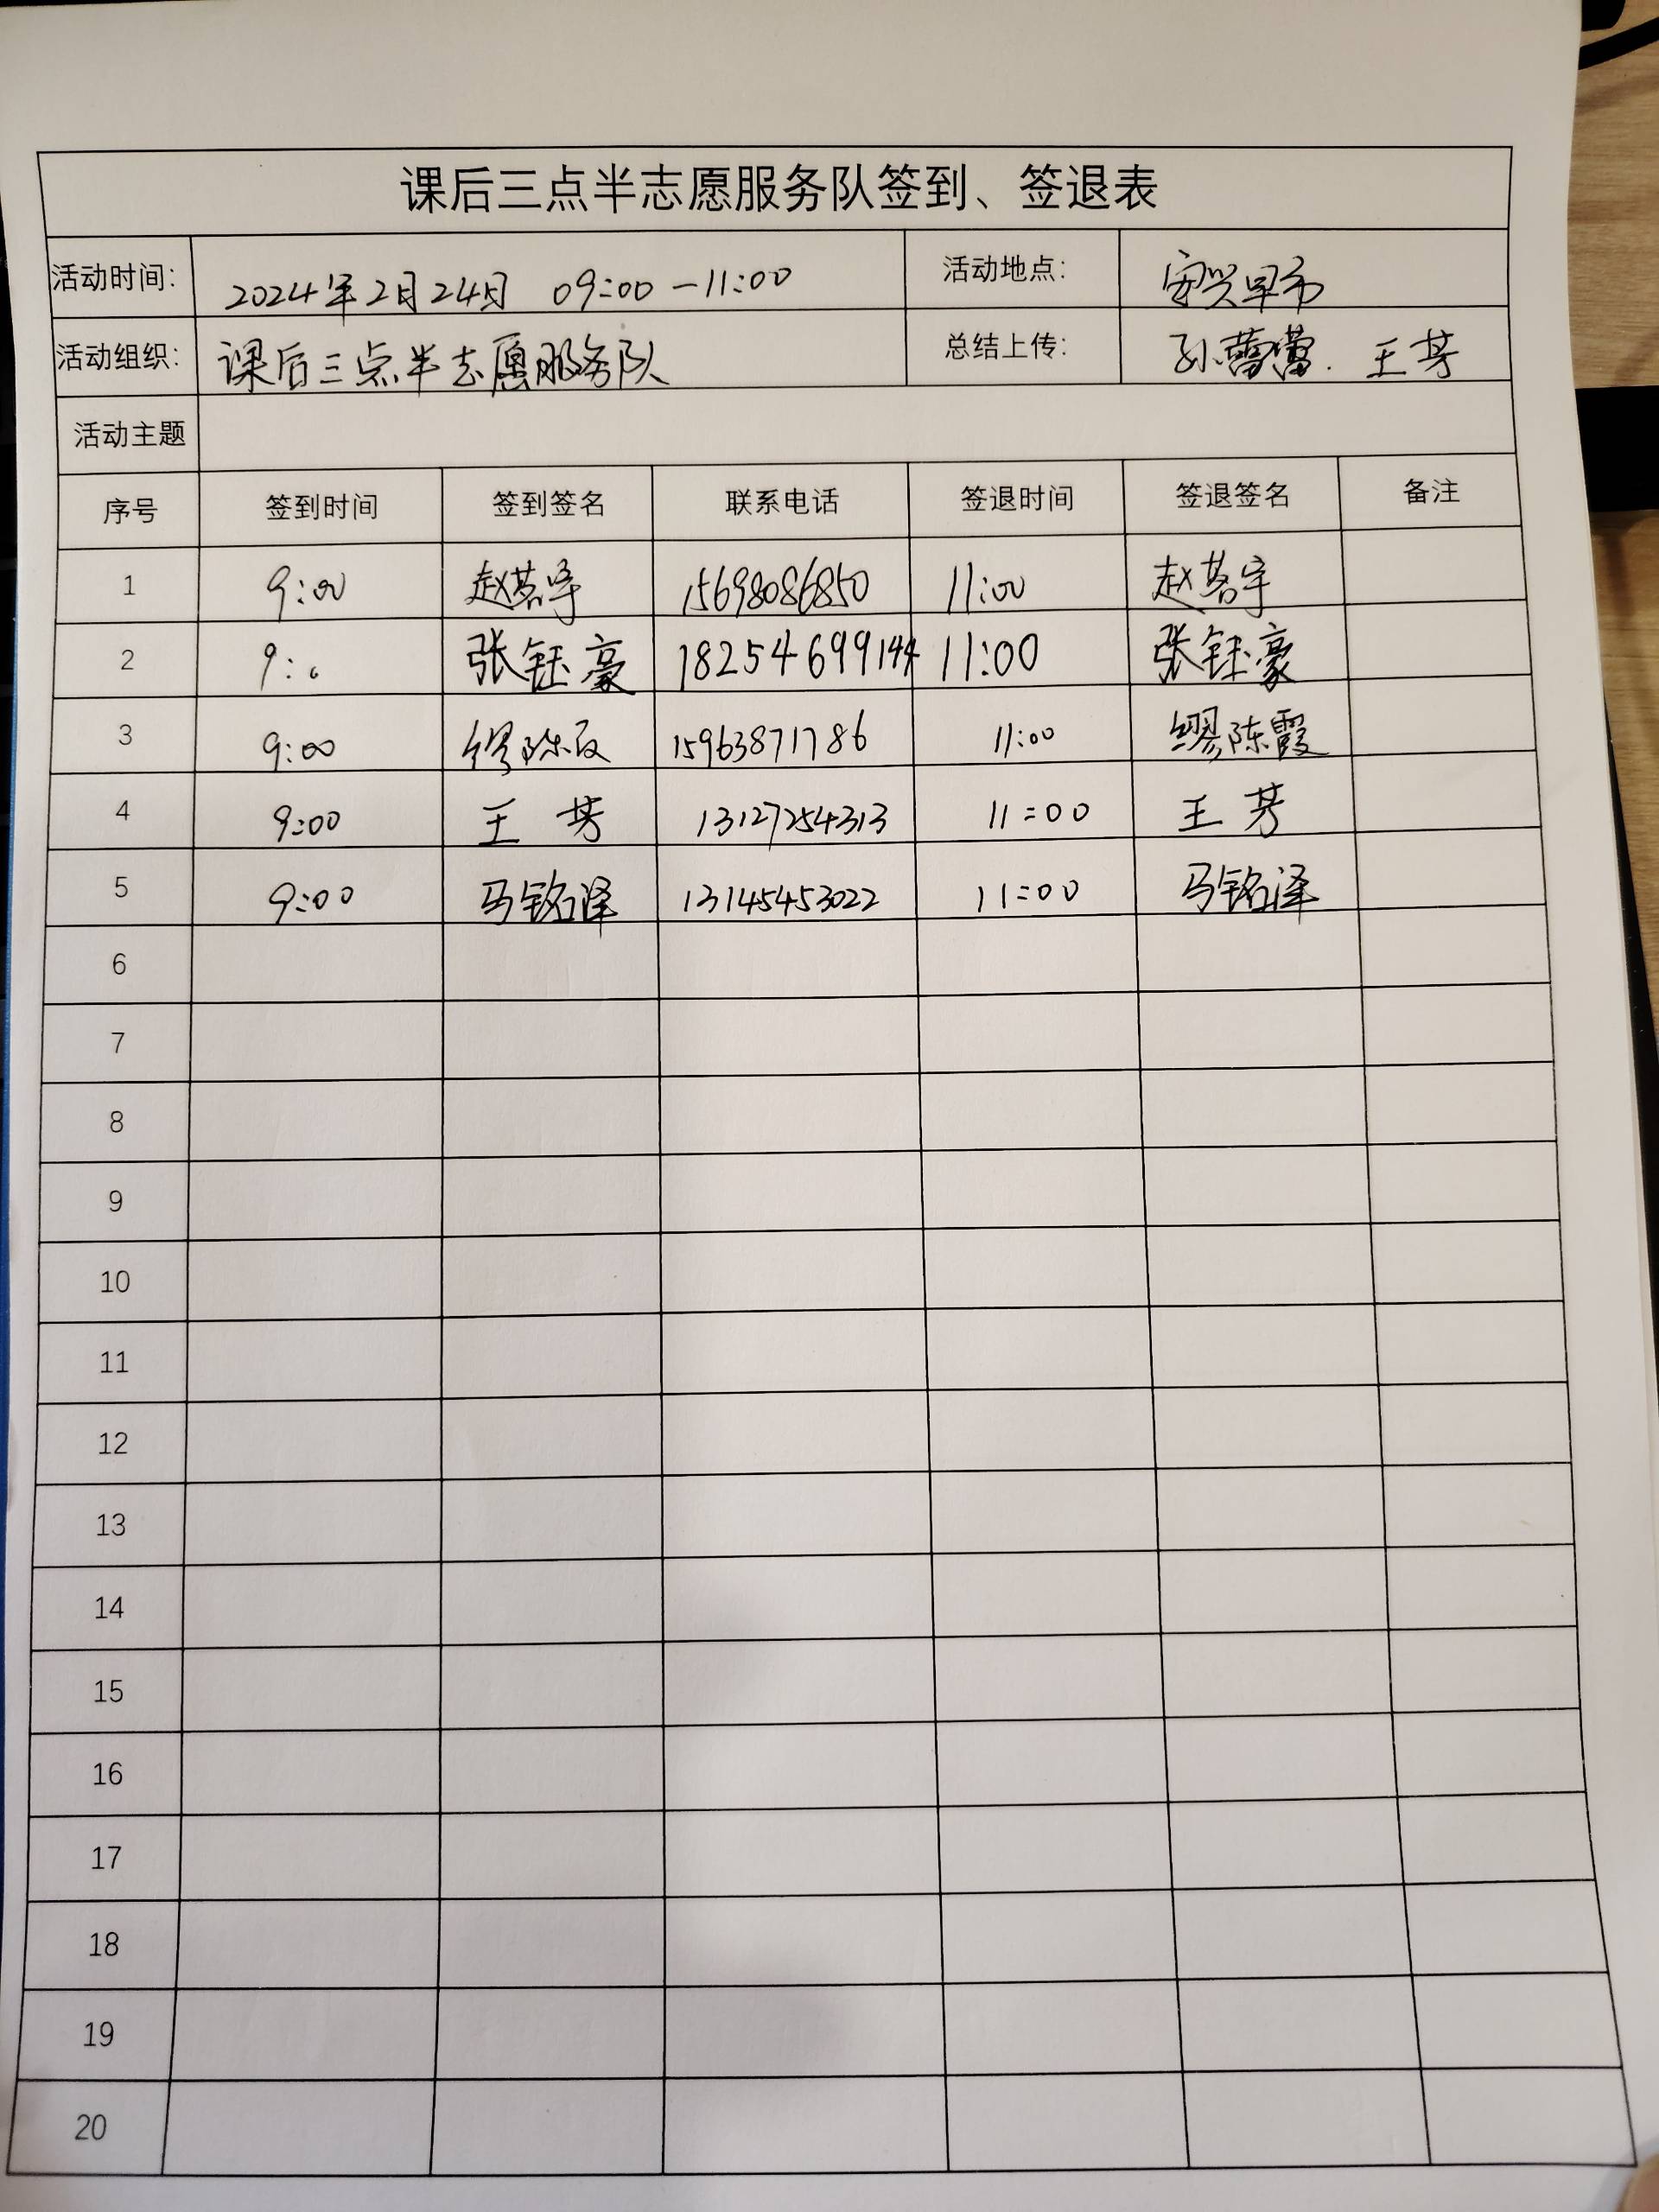 课后三点半志愿服务队签到、签退表
活动时间： 2024年2月24日 09:00—11:00 活动地点： 安兴早市
活动组织： 课后三点半志愿服务队 总结上传： 孙蕾蕾. 王芳
活动主题
序号 签到时间 签到签名 联系电话 签退时间 签退签名 备注
1 9:00 赵若宇 15698086850 11:00 赵若宇
2 9:0 张钰豪 18254699144 11:00 张钰豪
3 9:00 缪陈霞 15963871786 11:00 缪陈霞
4 9:00 王芳 13127254313 11:00 王芳
5 9:00 马铭泽 13145453022 11:00 马铭泽
6
7
8
9
10
11
12
13
14
15
16
17
18
19
20